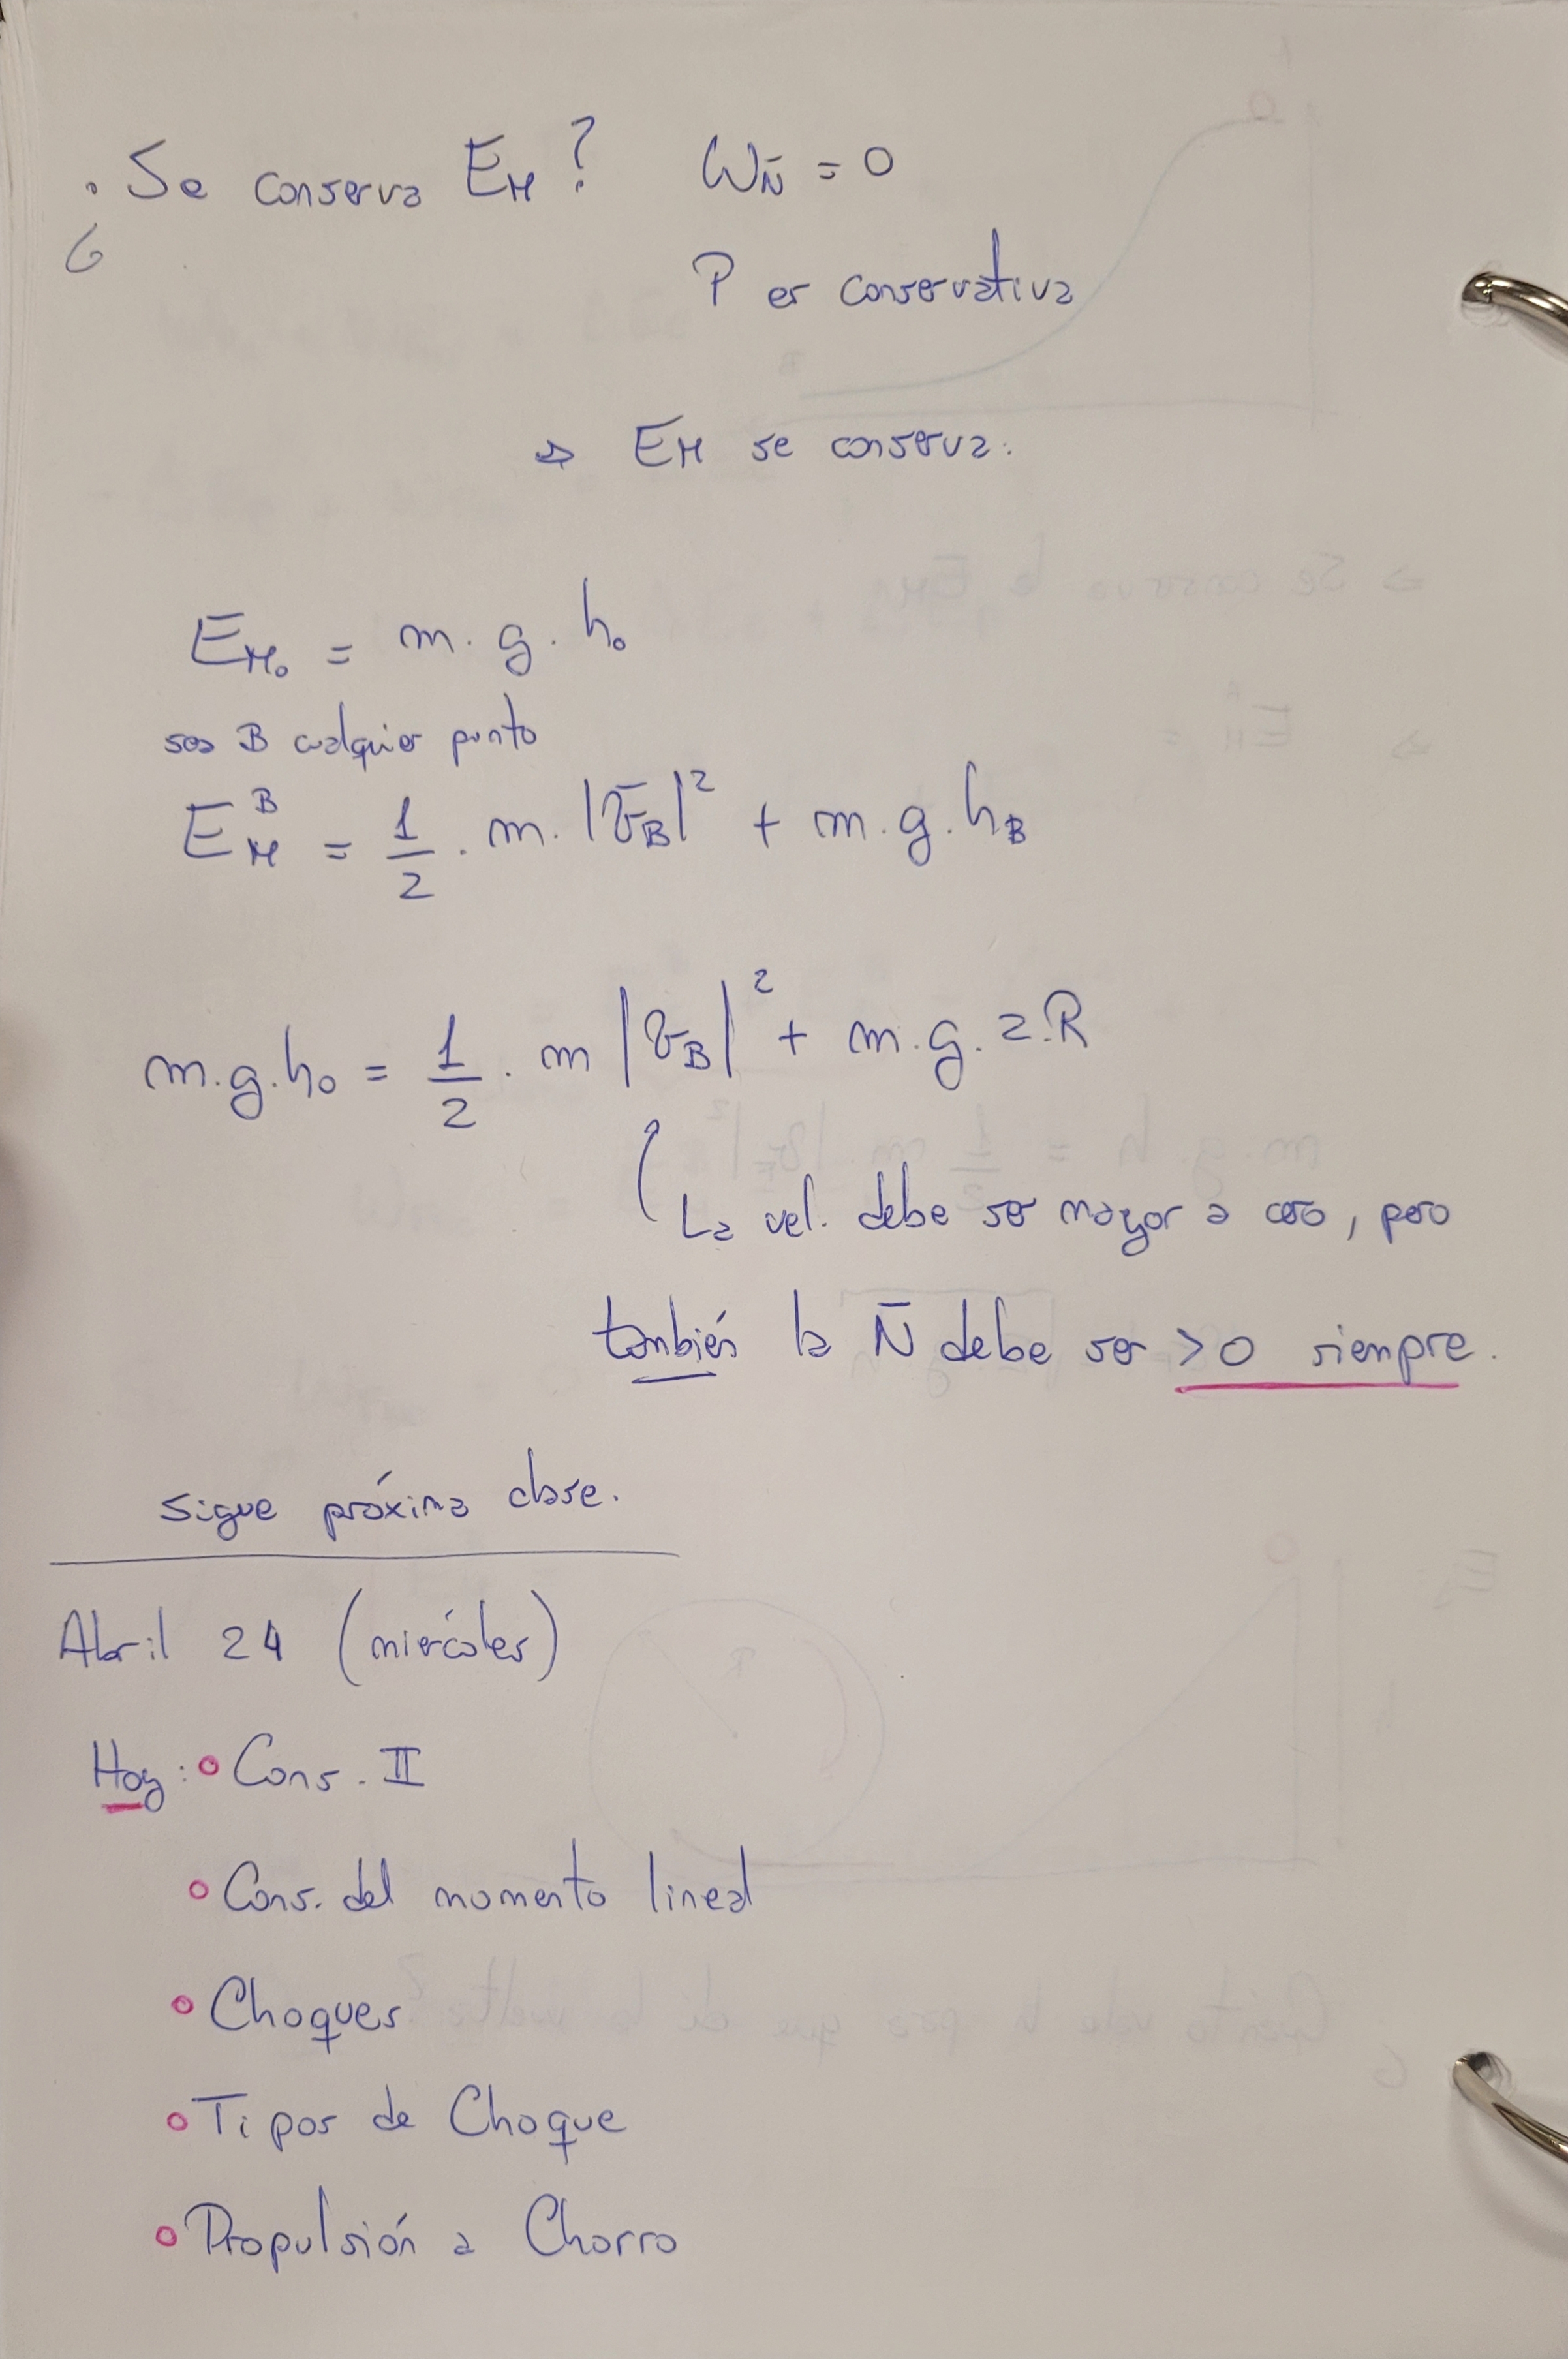 ¿Se conserva E_M? W_N̄ = 0
P es conservativa
⇒ E_M se conserva.
E_M₀ = m.g.h₀
sea B cualquier punto
E_M^B = 1/2 . m. |v̄_B|² + m.g.h_B
m.g.h₀ = 1/2 . m |v_B|² + m.g.2.R
La vel. debe ser mayor a cero, pero
también la N̄ debe ser >0 siempre.
sigue próxima clase.
Abril 24 (miércoles)
Hoy: Cons. II
Cons. del momento lineal
Choques
Tipos de Choque
Propulsión a Chorro